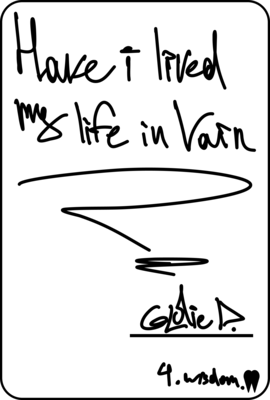 Have i lived
my life in Vain
D.
4. wisdom.